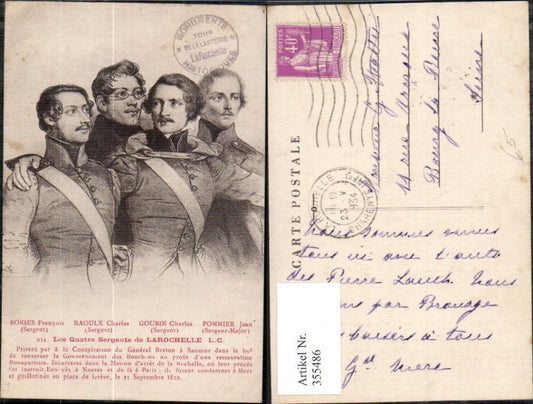 MONUMENTS
TOUR
DE LA LANTERNE
LaRochelle
HISTORIQUES
BORIES François RAOULX Charles GOUBIN Charles POMMIER Jean
(Sergent) (Sergent) (Sergent) (Sergent-Major)
912. Les Quatre Sergents de LAROCHELLE L. C.
Prirent par à la Conspiration du Général Breton à Saumur dans le but
de renverser le Gouvernement des Bourbons au profit d'une restauration
Bonapartiste. Incarcérés dans la Maison d'arrêt de la Rochelle, où leur procès
fut instruit. Envoyés à Nantes et de là à Paris; ils furent condamnés à Mort
et guillotinés en place de Grève, le 21 Septembre 1822.
POSTES
40c
CARTE POSTALE
Monsieur G
14 rue
Bourg la Reine
Seine
65
23 - V
1934
Nous sommes venus
tous en auto
des Pierre Nous
par Brouage
baisers à tous
Artikel Nr.
355486